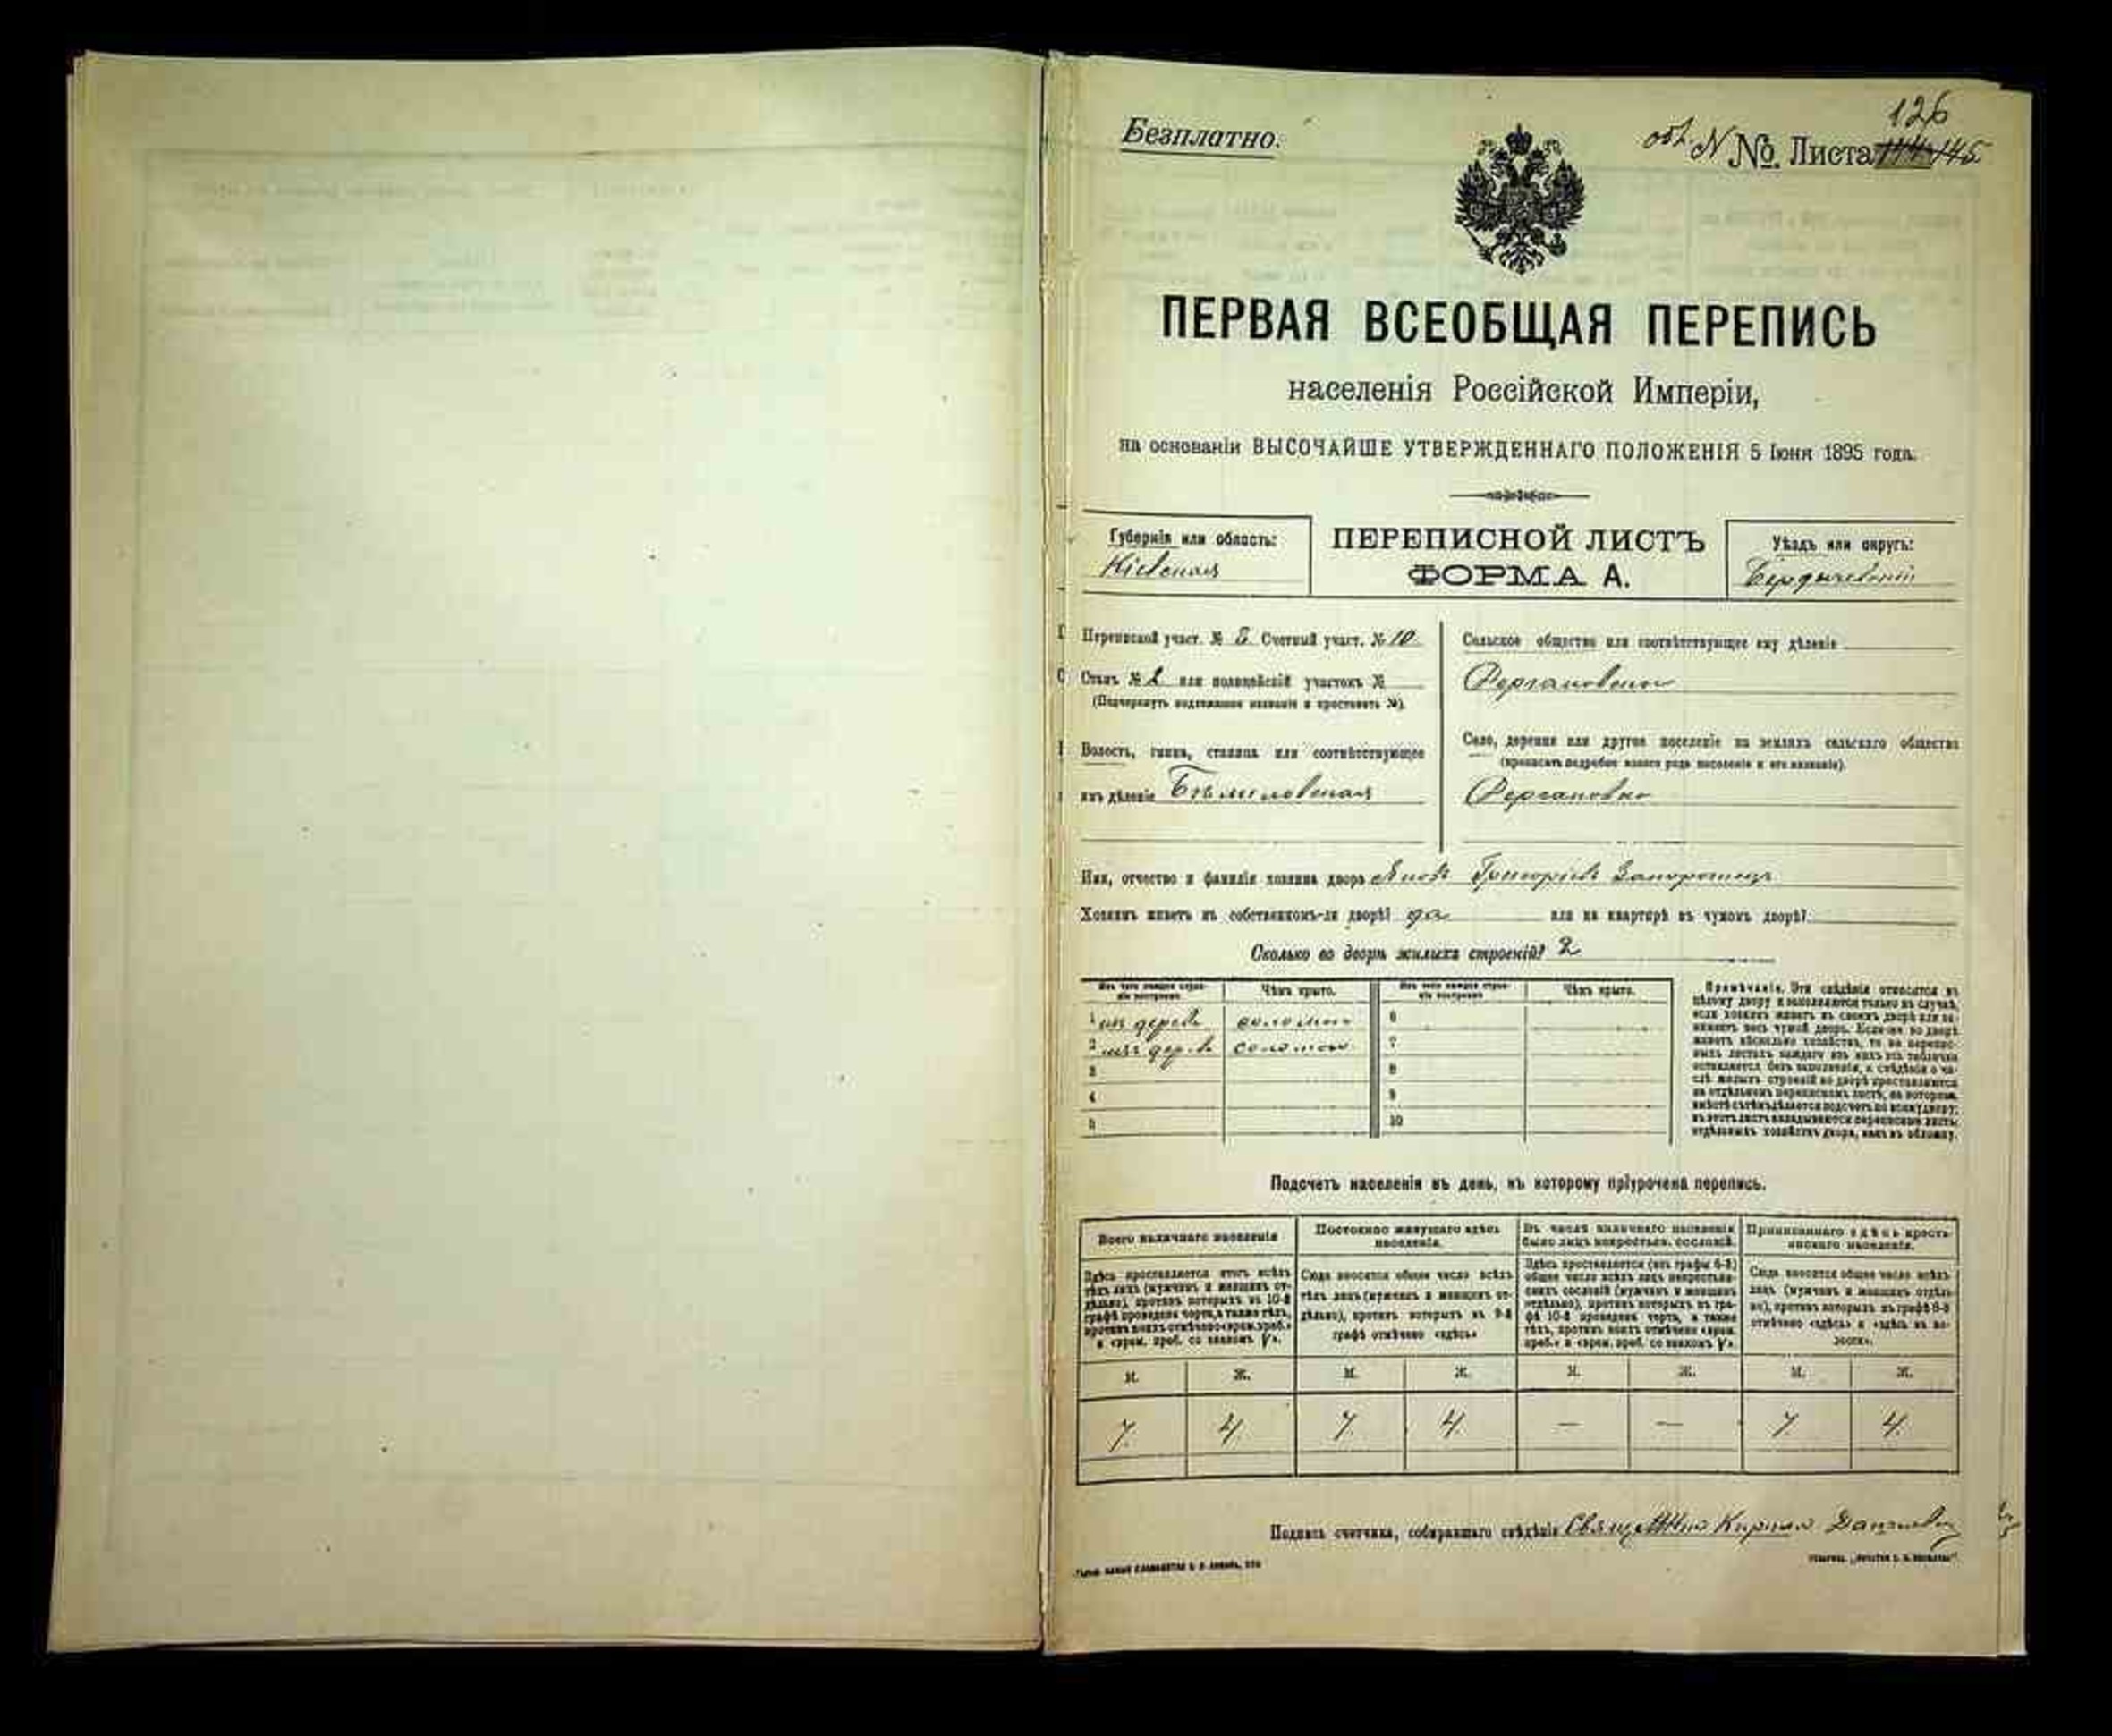 126
Безплатно.
№ Листа 145
ПЕРВАЯ ВСЕОБЩАЯ ПЕРЕПИСЬ
населенія Россійской Имперіи,
на основаніи ВЫСОЧАЙШЕ УТВЕРЖДЕННАГО ПОЛОЖЕНІЯ 5 Іюня 1895 года.
Губернія или область:
Кіевская
ПЕРЕПИСНОЙ ЛИСТЪ
ФОРМА А.
Уѣздъ или округъ:
Бердичевскій
Переписной участ. № 3 Счетный участ. № 10
Станъ № 2 или полицейскій участокъ №
(Подчеркнуть надлежащее названіе и проставить №).
Волость, гмина, станица или соотвѣтствующее
имъ дѣленіе Бѣлиловская
Сельское общество или соотвѣтствующее ему дѣленіе
Село, деревня или другое поселеніе на земляхъ сельскаго общества
(прописать подробно какого рода поселеніе и его названіе).
Имя, отчество и фамилія хозяина двора Яковъ Григорьевъ Запорожецъ
Хозяинъ живетъ въ собственномъ-ли дворѣ? да или на квартирѣ въ чужомъ дворѣ?
Сколько во дворѣ жилыхъ строеній? 2
Изъ чего каждое строеніе построено. Чѣмъ крыто. Изъ чего каждое строеніе построено. Чѣмъ крыто.
1 изъ дерева соломою 6
2 изъ дерева соломою 7
3 8
4 9
5 10
Примѣчаніе. Эти свѣдѣнія относятся къ
цѣлому двору и заполняются только въ случаѣ,
если хозяинъ живетъ въ своемъ дворѣ или за-
нимаетъ весь чужой дворъ. Если-же во дворѣ
живетъ нѣсколько хозяйствъ, то на перепис-
ныхъ листахъ каждаго изъ нихъ эта табличка
оставляется безъ заполненія, а свѣдѣнія о чи-
слѣ жилыхъ строеній во дворѣ проставляются
на отдѣльномъ переписномъ листѣ, на которомъ
вмѣстѣ съ тѣмъ дѣлается подсчетъ по всему двору;
въ этотъ листъ вкладываются переписные листы
отдѣльныхъ хозяйствъ двора, какъ въ обложку.
Подсчетъ населенія въ день, къ которому пріурочена перепись.
Всего наличнаго населенія
Здѣсь проставляется итогъ всѣхъ
тѣхъ лицъ (мужчинъ и женщинъ от-
дѣльно), противъ которыхъ въ 10-й
графѣ проведена черта, а также тѣхъ,
противъ коихъ отмѣчено «врем. преб.»
и «врем. преб. со знакомъ V».
Постоянно живущаго здѣсь
населенія.
Сюда вносится общее число всѣхъ
тѣхъ лицъ (мужчинъ и женщинъ от-
дѣльно), противъ которыхъ въ 9-й
графѣ отмѣчено «здѣсь»
Въ числѣ наличнаго населенія
было лицъ некрестьян. сословій.
Здѣсь проставляется (изъ графы 6-й)
общее число всѣхъ лицъ некрестьян-
скихъ сословій (мужчинъ и женщинъ
отдѣльно), противъ которыхъ въ гра-
фѣ 10-й проведена черта, а также
тѣхъ, противъ коихъ отмѣчено «врем.
преб.» и «врем. преб. со знакомъ V».
Приписаннаго здѣсь кресть-
янскаго населенія.
Сюда вносится общее число всѣхъ
лицъ (мужчинъ и женщинъ отдѣль-
но), противъ которыхъ въ графѣ 8-й
отмѣчено «здѣсь» и «здѣсь въ во-
лости».
М. Ж. М. Ж. М. Ж. М. Ж.
7. 4. 7. 4. — — 7 4.
Подпись счетчика, собиравшаго свѣдѣнія Кириллъ